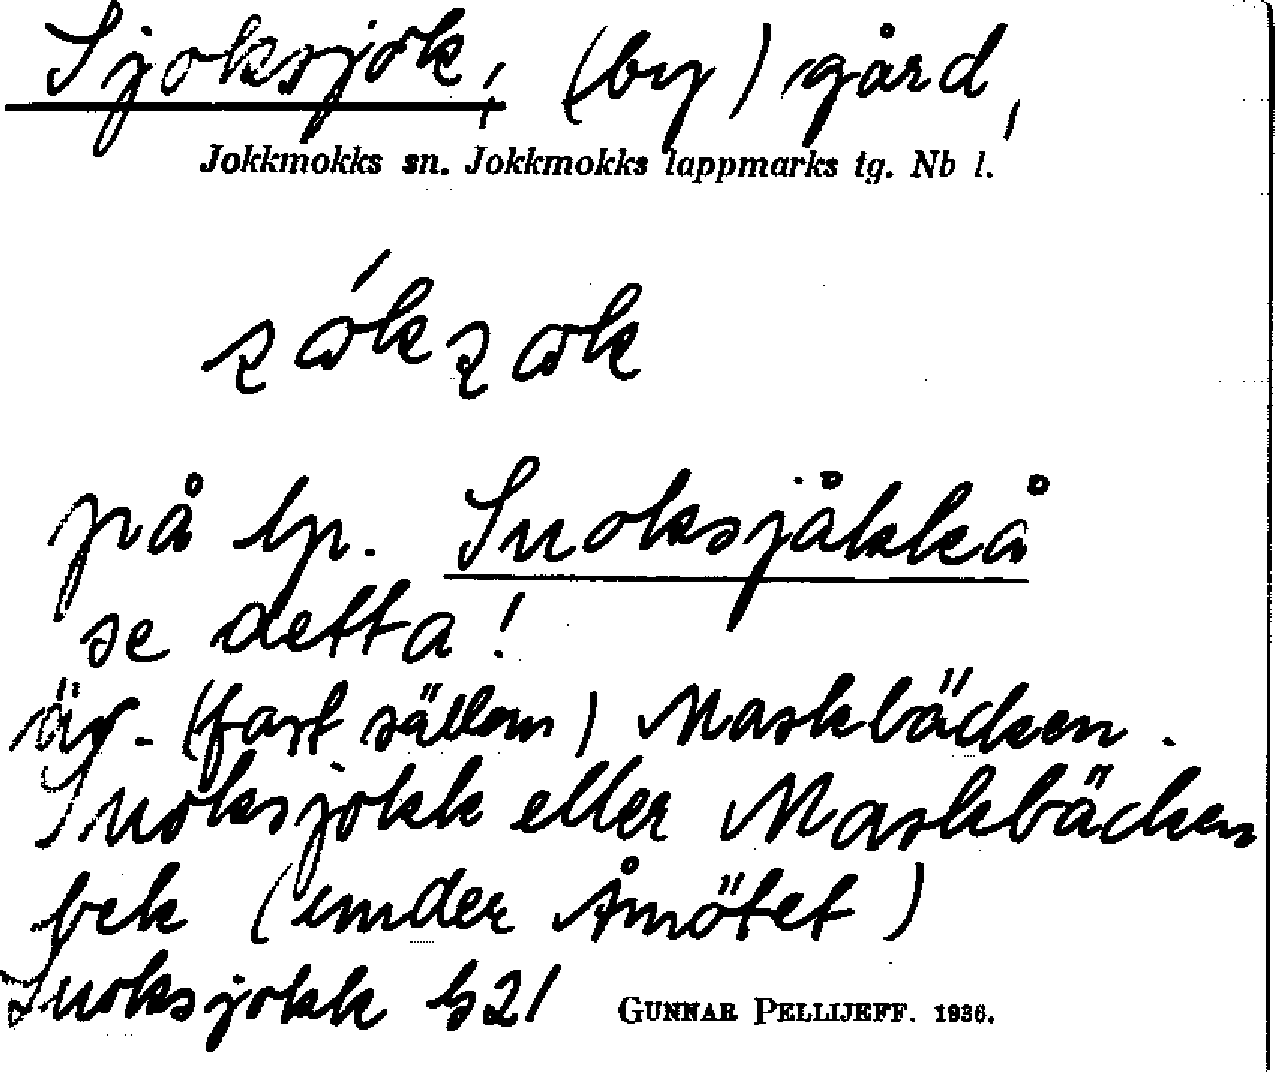 Sjoksjok, (by) gård,
Jokkmokks sn. Jokkmokks lappmarks tg. Nb l.
på lp. Suoksjåkkå
se detta!
äv. (fast sällan) Maskbäcken.
Suoksjokk eller Maskbäcken
bek (under Åmötet)
Suoksjokk b21 GUNNAR PELLIJEFF. 1936.